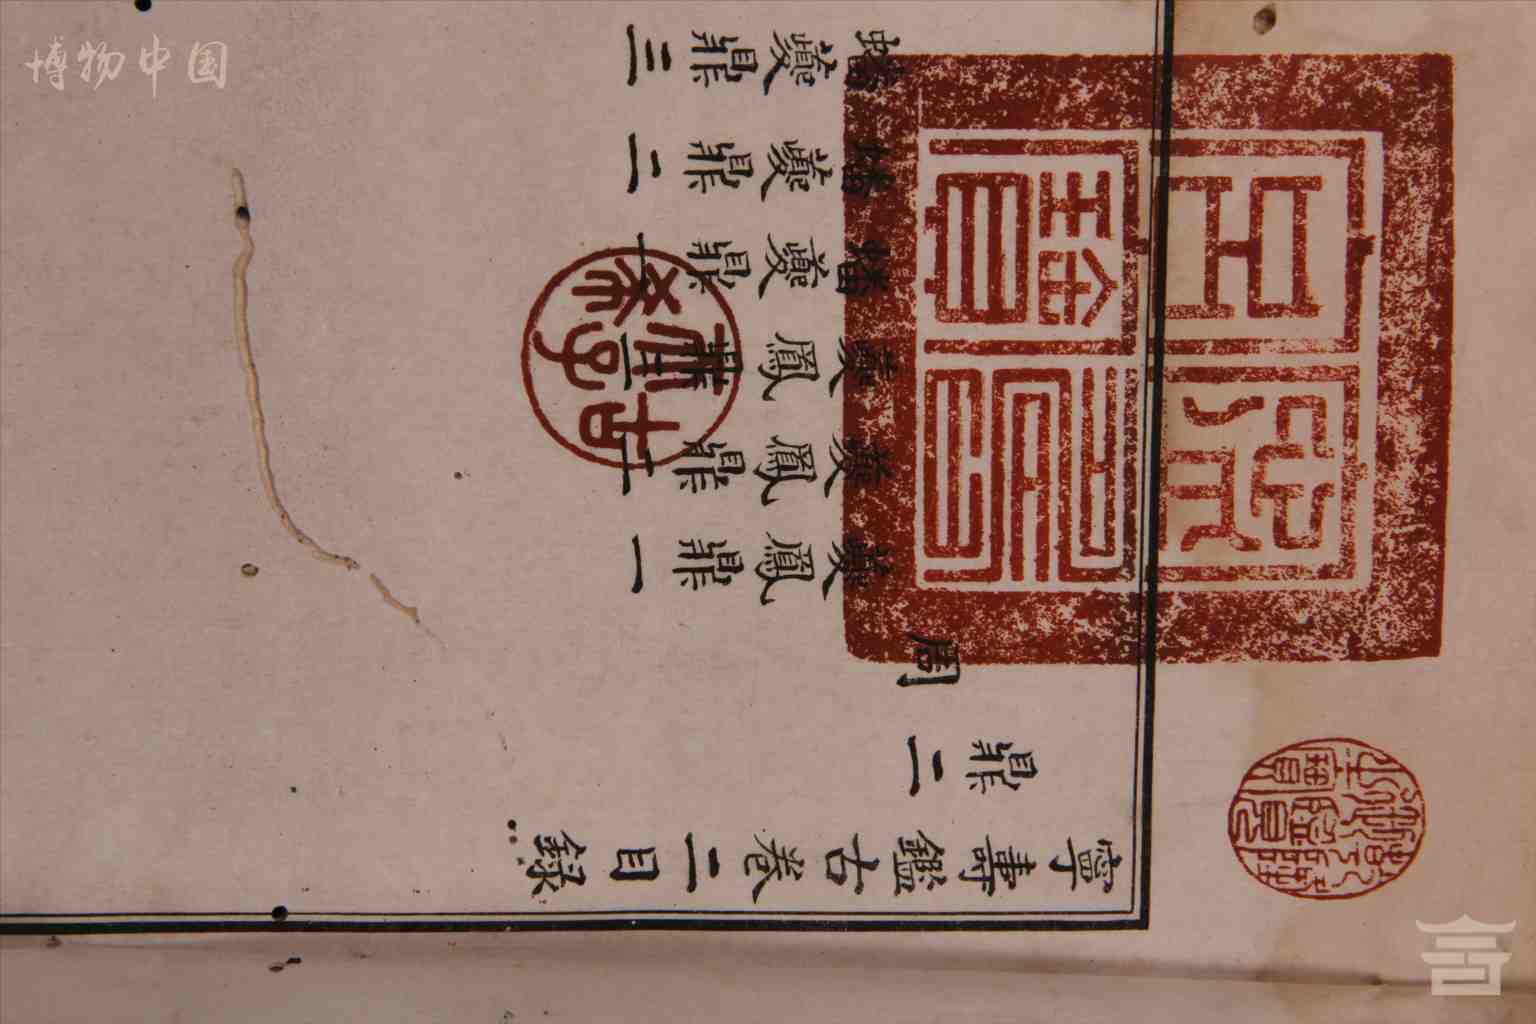 博物中国
寧壽鑑古卷二目錄
鼎二
周
夔鳳鼎一
夔鳳鼎二
夔鳳鼎三
蟠夔鼎一
蟠夔鼎二
蟠夔鼎三